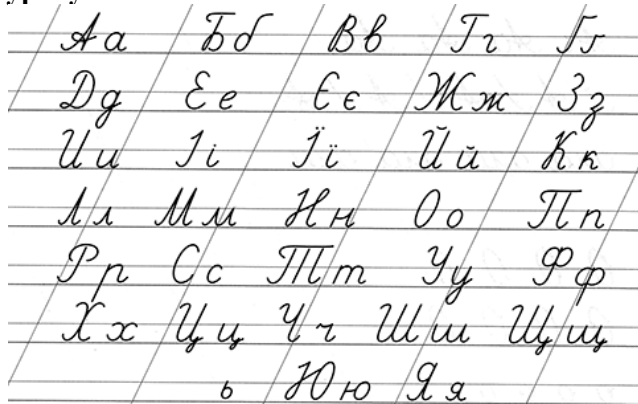 Аа Бб Вв Гг Ґґ
Дд Ее Єє Жж Зз
Ии Іі Її Йй Кк
Лл Мм Нн Оо Пп
Рр Сс Тт Уу Фф
Хх Цц Чч Шш Щщ
ь Юю Яя